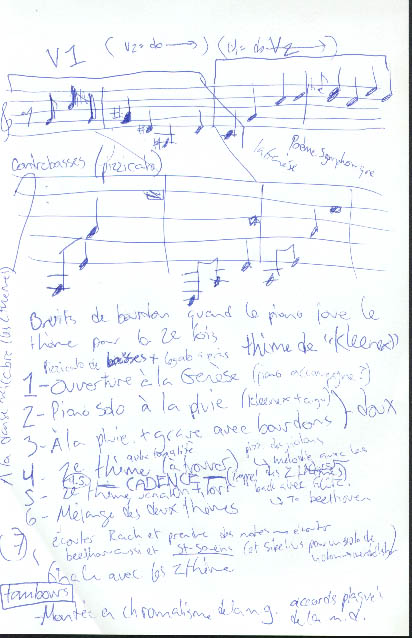 V1 (V2 = do →) (V1 = do V2 →)
Poème symphonique
la Genèse
Contrebasses (pizzicato)
Bruits de bourdon quand le piano joue le
thème pour la 2e fois
thème de "Kleenex"
Pizzicato de basses + legato après
1 - Ouverture à la Genèse (piano accompagne?)
2 - Piano solo à la pluie (Kleenex + aigu)
doux
3 - À la pluie + grave avec bourdons
autre tonalité
4 - 2e thème (à trouver)
mélodie avec les
CADENCE (rappel des 2
5 - 2e thème variation + fort
→ To beethoven
6 - Mélange des deux thèmes
écouter Rach et prendre des notes
beethoven aussi et st-saens (et Sibelius pour un solo de
(7)
finale avec les 2 thèmes
tambours
- Montée en chromatisme de la m.g. accords plaqués
de la m.d.
À la danse macabre (les 2 thèmes)